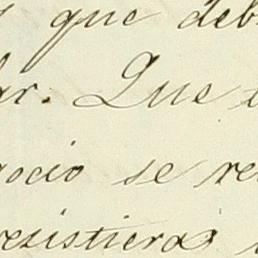 que deb
ar. Que
gocio se re
resistieras